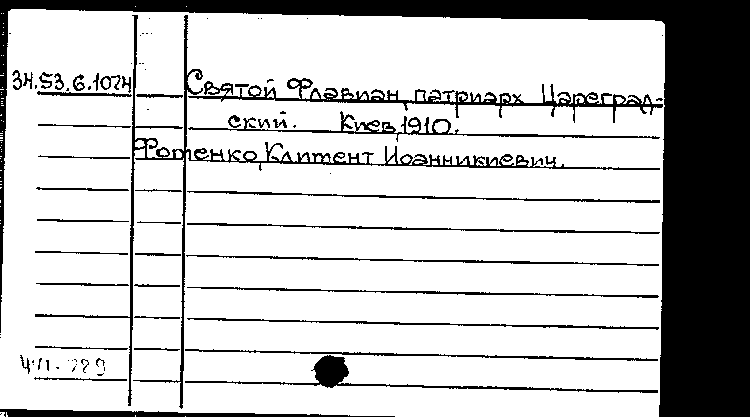 34.53.6.1024 Святой Флавиан, патриарх Цареград-
ский. Киев, 1910.
Фотенко, Климент Иоанникиевич.